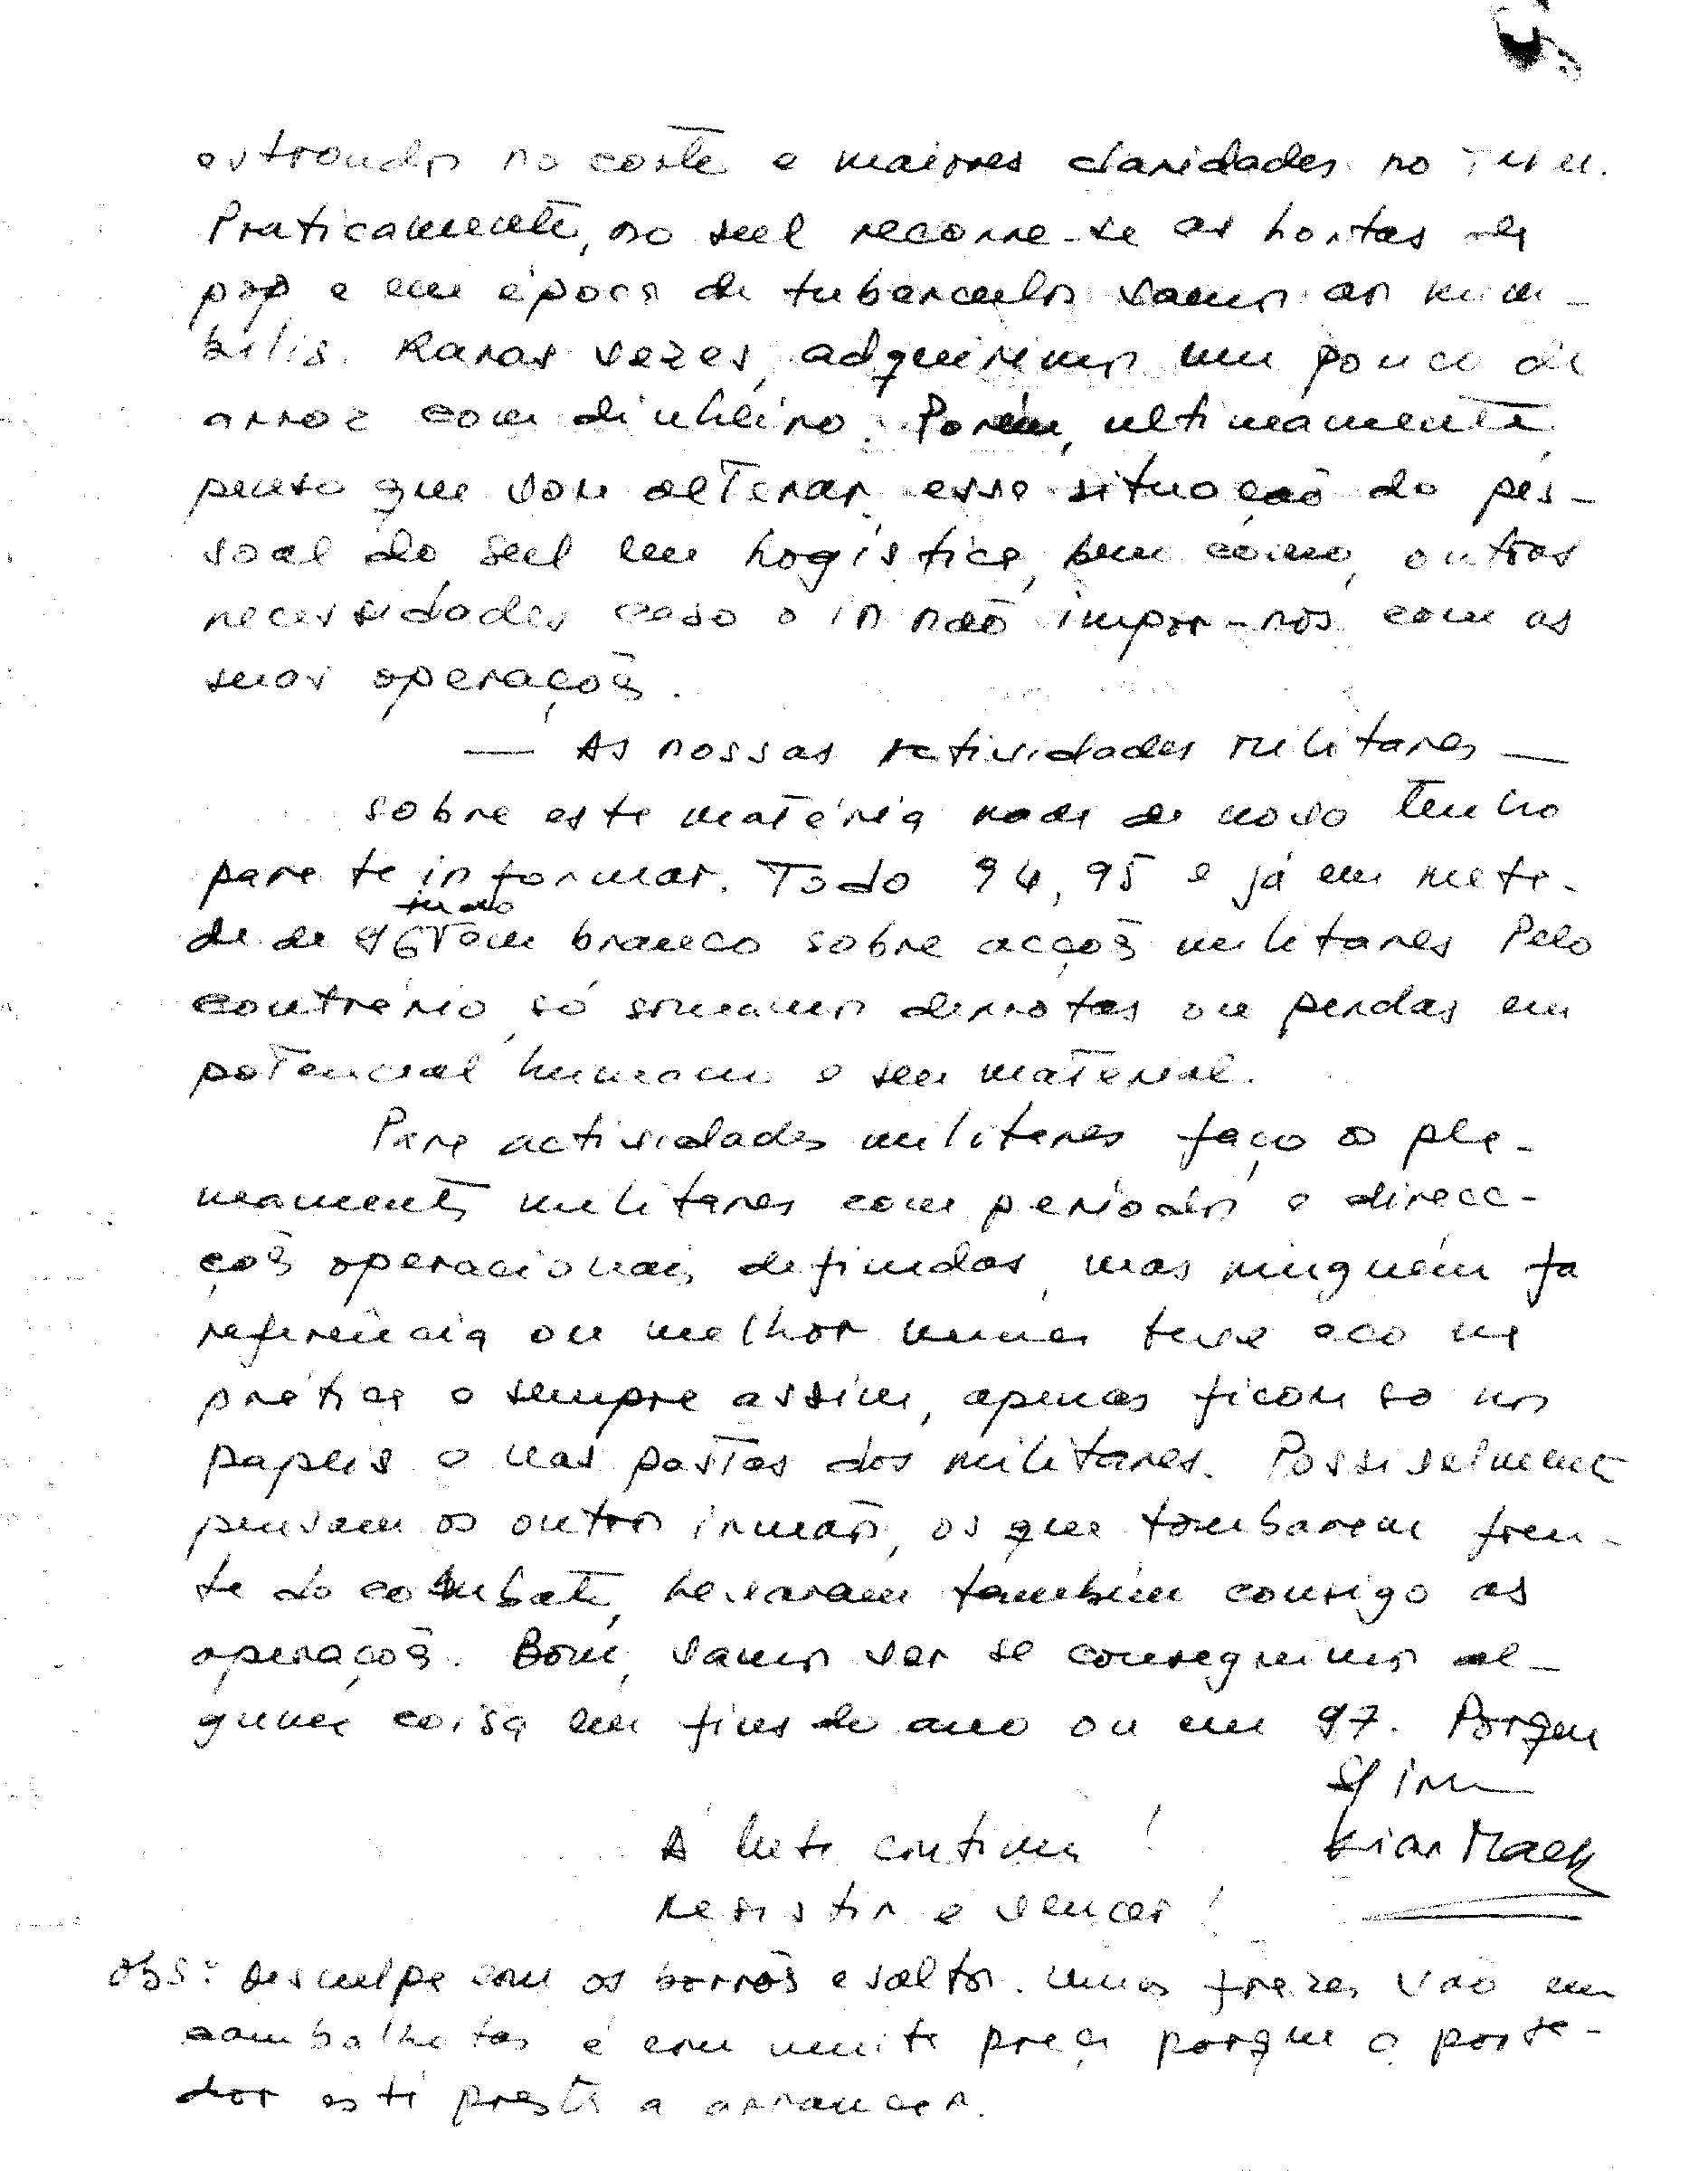 estrondos no corte e maiores claridades no
Praticamente, no sul recorre-se as hortas da
pop e em época de tuberculos vamos ao kum-
bilis. Raras vezes, adquirimos um pouco de
arroz com dinheiro. Porém, ultimamente
penso que vou alterar essa situação do pes-
soal do sul em logística, bem como, outras
necessidades caso o in não impor-nos com as
suas operações.
— As nossas actividades militares —
sobre este matéria nada de novo tenho
para te informar. Todo 94, 95 e já em meta-
de de 96 tudo em branco sobre acções militares Pelo
contrário, só somamos derrotas ou perdas em
potencial humano e seu material.
Para actividades militares faço os pla-
neamentos militares com períodos e direc-
ções operacionais definidas, mas ninguém fa
referência ou melhor nunca teve eco na
prática e sempre assim, apenas ficou so nos
papeis e nas pastas dos militares. Possivelmente
pensam os outros irmãos, os que tombarem fren-
te do combate, levaram também consigo as
operações. Bom, vamos ver se conseguimos al-
guma coisa em fins do ano ou em 97. Porque
A luta continua!
Resistir e vencer!
obs: desculpe com os borrões e saltos. umas frazes vão em
cambalhotas é com muita preça porque o porta-
dor está presta a arrancar.